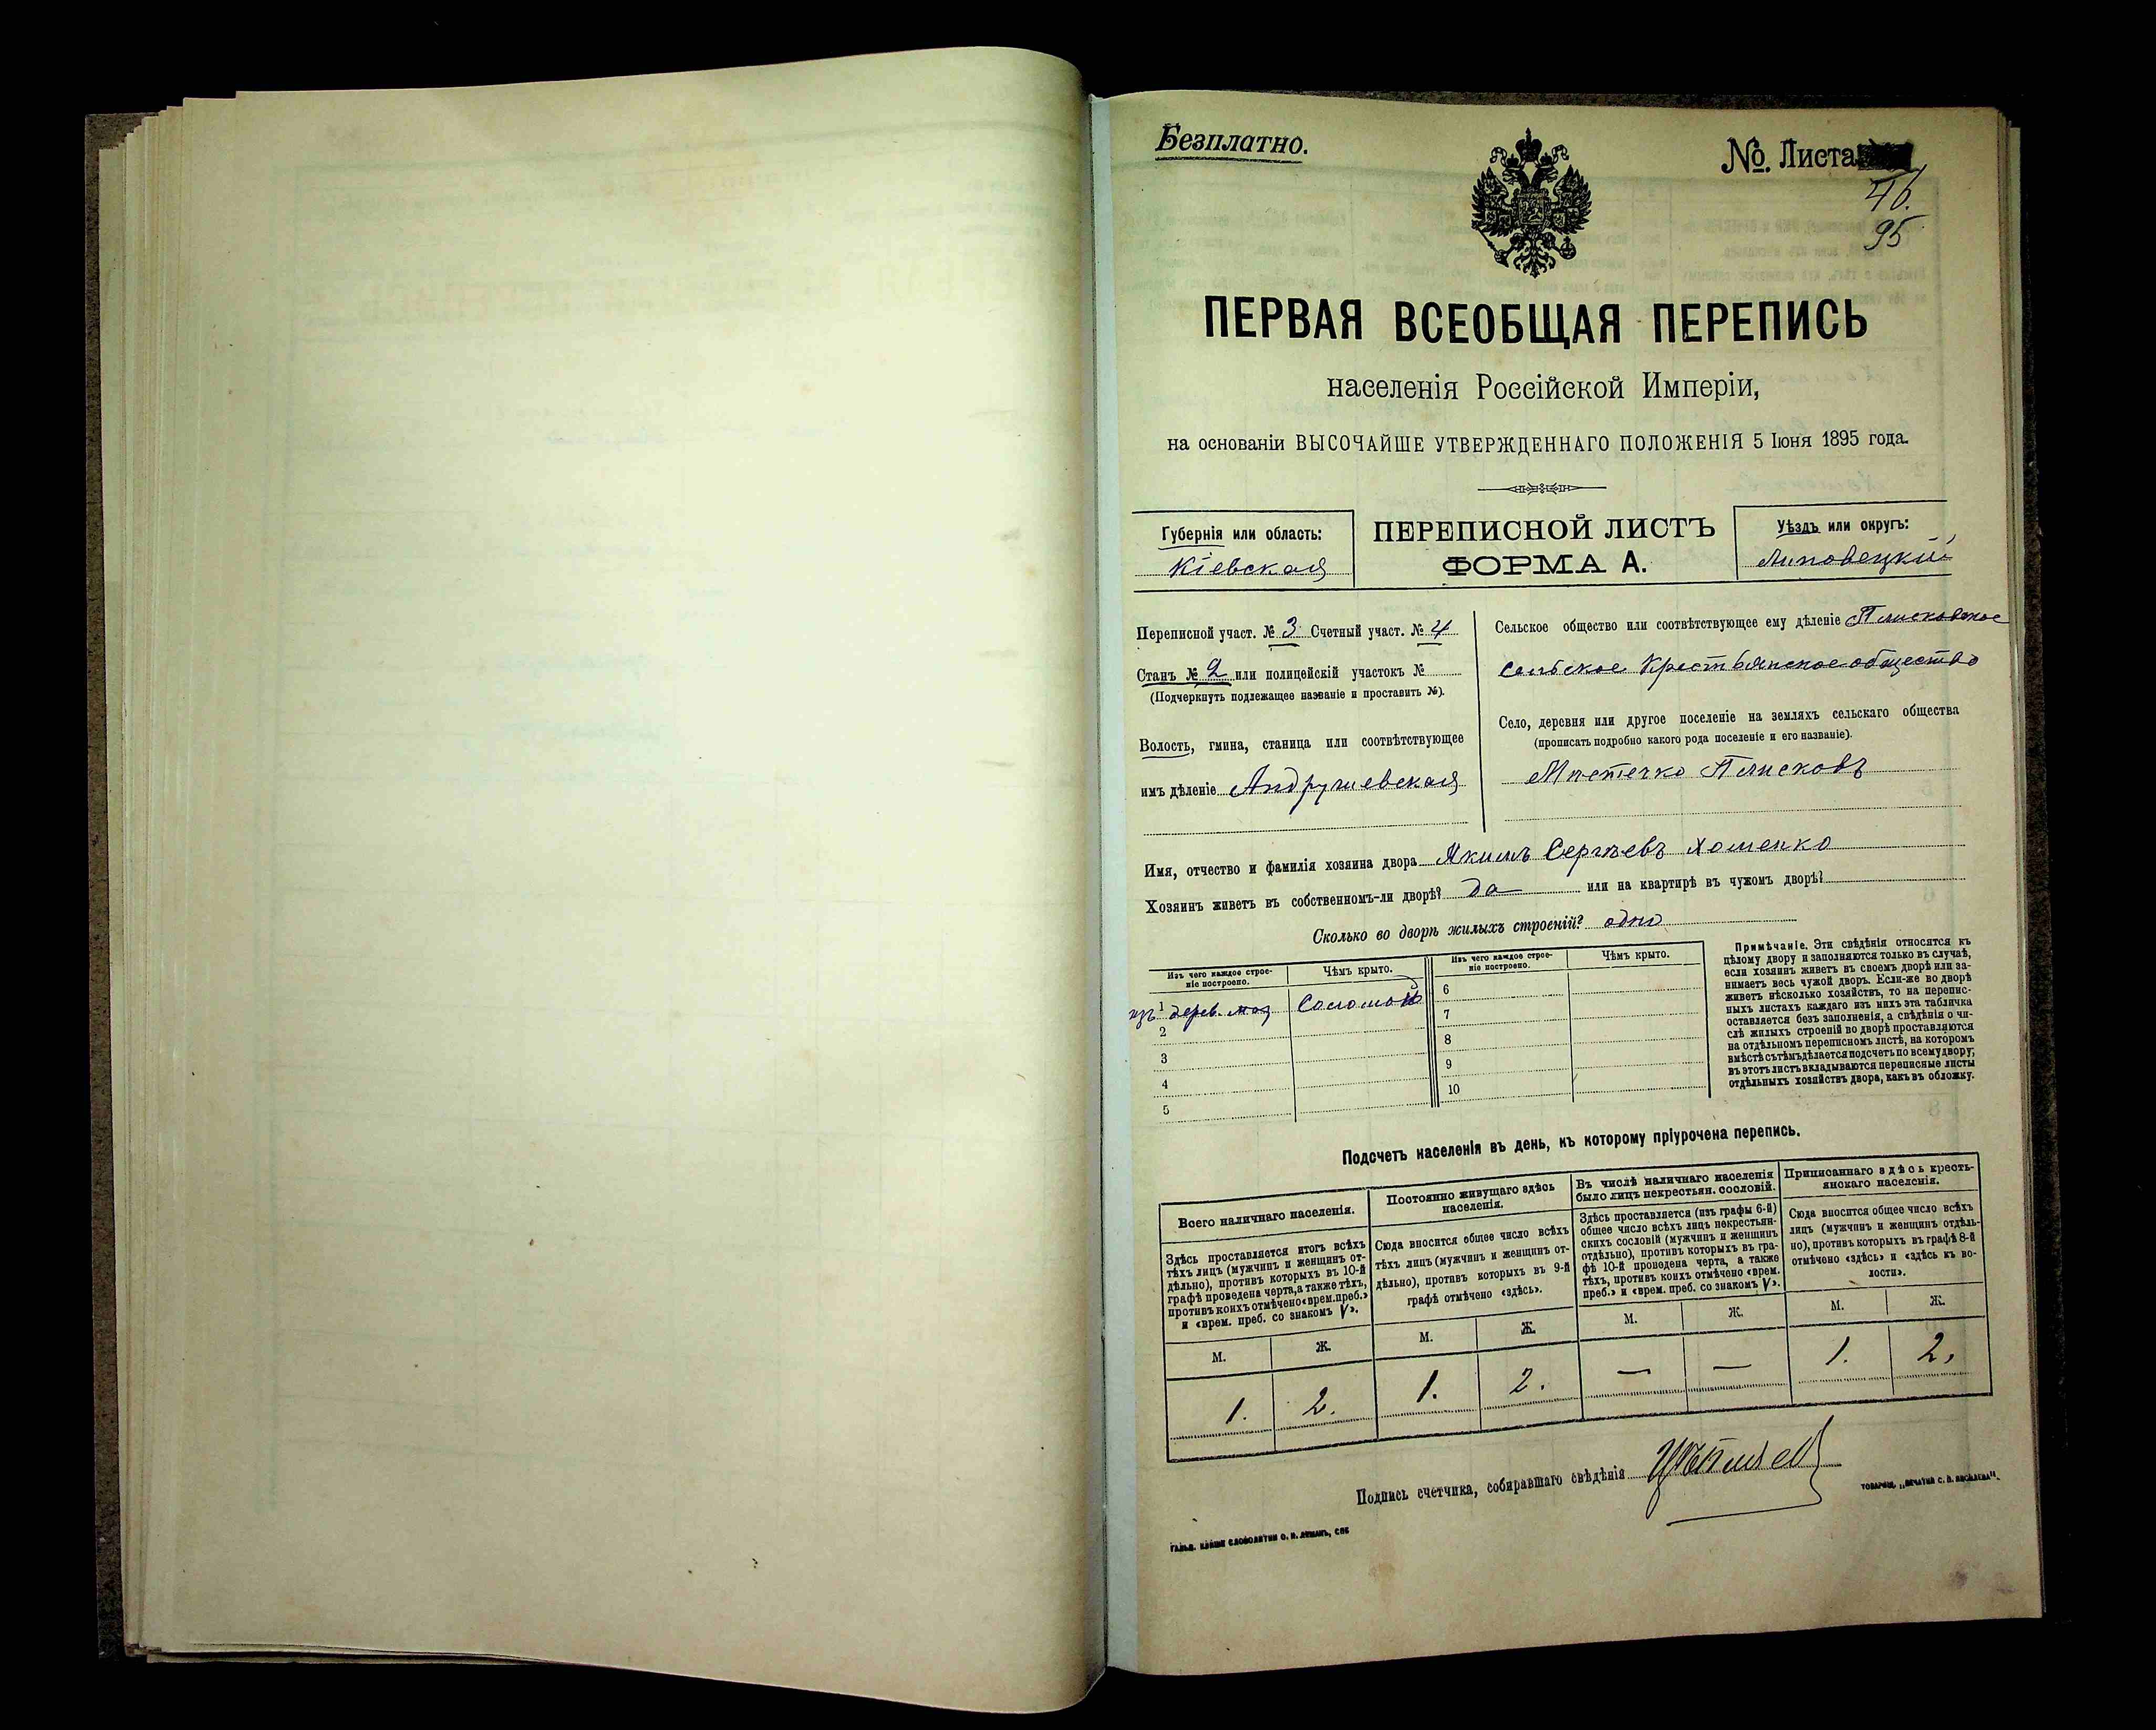 Безплатно.
№. Листа
46.
95
ПЕРВАЯ ВСЕОБЩАЯ ПЕРЕПИСЬ
населенія Россійской Имперіи,
на основаніи ВЫСОЧАЙШЕ УТВЕРЖДЕННАГО ПОЛОЖЕНІЯ 5 Іюня 1895 года.
Губернія или область:
Кіевская
ПЕРЕПИСНОЙ ЛИСТЪ
ФОРМА А.
Уѣздъ или округъ:
Липовецкій
Переписной участ. № 3 Счетный участ. № 4
Станъ № 2 или полицейскій участокъ №
(Подчеркнуть подлежащее названіе и проставить №).
Волость, гмина, станица или соотвѣтствующее
имъ дѣленіе Андрушевская
Сельское общество или соотвѣтствующее ему дѣленіе Плисковское
сельское Крестьянское общество
Село, деревня или другое поселеніе на земляхъ сельскаго общества
(прописать подробно какого рода поселеніе и его названіе).
Мѣстечко Плисковъ
Имя, отчество и фамилія хозяина двора Якимъ Сергѣевъ Хоменко
Хозяинъ живетъ въ собственномъ-ли дворѣ? да или на квартирѣ въ чужомъ дворѣ?
Сколько во дворѣ жилыхъ строеній? одно
Изъ чего каждое строе-
ніе построено.
Чѣмъ крыто.
Изъ чего каждое строе-
ніе построено.
Чѣмъ крыто.
изъ 1 дерев. маз Соломой
2
3
4
5
6
7
8
9
10
Примѣчаніе. Эти свѣдѣнія относятся къ
цѣлому двору и заполняются только въ случаѣ,
если хозяинъ живетъ въ своемъ дворѣ или за-
нимаетъ весь чужой дворъ. Если-же во дворѣ
живетъ нѣсколько хозяйствъ, то на перепис-
ныхъ листахъ каждаго изъ нихъ эта табличка
оставляется безъ заполненія, а свѣдѣнія о чи-
слѣ жилыхъ строеній во дворѣ проставляются
на отдѣльномъ переписномъ листѣ, на которомъ
вмѣстѣ съ тѣмъ дѣлается подсчетъ по всему двору;
въ этотъ листъ вкладываются переписные листы
отдѣльныхъ хозяйствъ двора, какъ въ обложку.
Подсчетъ населенія въ день, къ которому пріурочена перепись.
Всего наличнаго населенія.
Здѣсь проставляется итогъ всѣхъ
тѣхъ лицъ (мужчинъ и женщинъ от-
дѣльно), противъ которыхъ въ 10-й
графѣ проведена черта, а также тѣхъ,
противъ коихъ отмѣчено «врем. преб.»
и «врем. преб. со знакомъ V».
М. Ж.
1. 2.
Постоянно живущаго здѣсь
населенія.
Сюда вносится общее число всѣхъ
тѣхъ лицъ (мужчинъ и женщинъ от-
дѣльно), противъ которыхъ въ 9-й
графѣ отмѣчено «здѣсь».
М. Ж.
1. 2.
Въ числѣ наличнаго населенія
было лицъ некрестьян. сословій.
Здѣсь проставляется (изъ графы 6-й)
общее число всѣхъ лицъ некрестьян-
скихъ сословій (мужчинъ и женщинъ
отдѣльно), противъ которыхъ въ гра-
фѣ 10-й проведена черта, а также
тѣхъ, противъ коихъ отмѣчено «врем.
преб.» и «врем. преб. со знакомъ V».
М. Ж.
— —
Приписаннаго здѣсь кресть-
янскаго населенія.
Сюда вносится общее число всѣхъ
лицъ (мужчинъ и женщинъ отдѣль-
но), противъ которыхъ въ графѣ 8-й
отмѣчено «здѣсь» и «здѣсь къ во-
лости».
М. Ж.
1. 2.
Подпись счетчика, собиравшаго свѣдѣнія
ГАЛЬВ. КЛИШЕ СЛОВОЛИТНИ О. И. ЛЕМАНЪ, СПБ
ТОВАРИЩ. „ПЕЧАТНЯ С. П. ЯКОВЛЕВА".